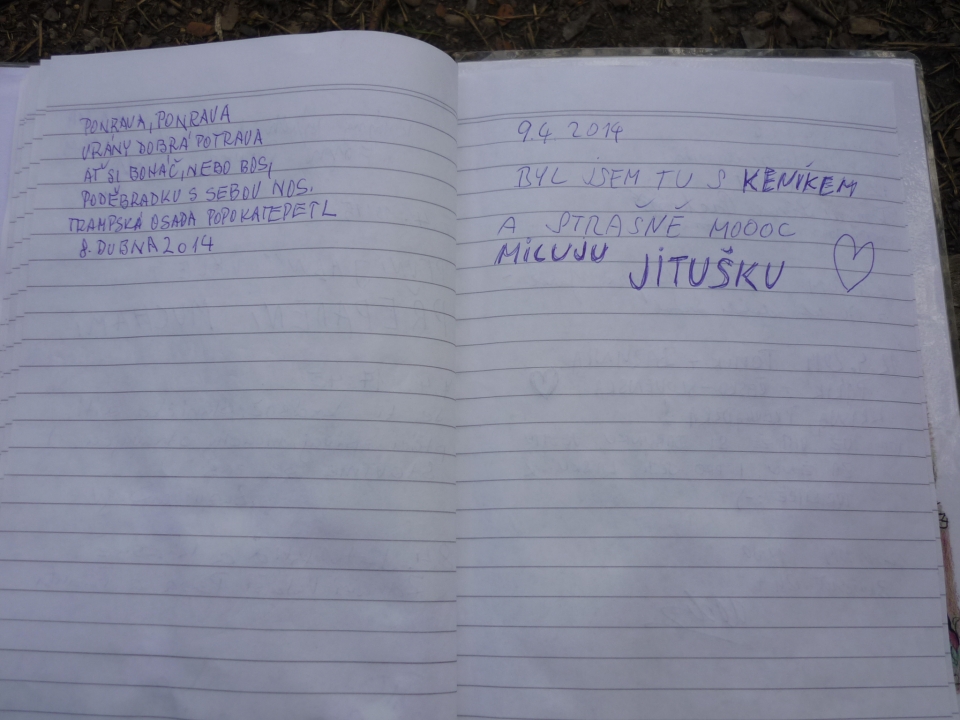 PONRAVA, PONRAVA
VRÁNY DOBRÁ POTRAVA
AŤ SI BOHÁČ, NEBO BOSÍ,
PODĚBRADKU S SEBOU NOS.
TRAMPSKÁ OSADA POPOKATEPETL
8. DUBNA 2014
9.4. 2014
BYL JSEM TU S KENÍKEM
A STRAŠNĚ MOOOC
MILUJU JITUŠKU